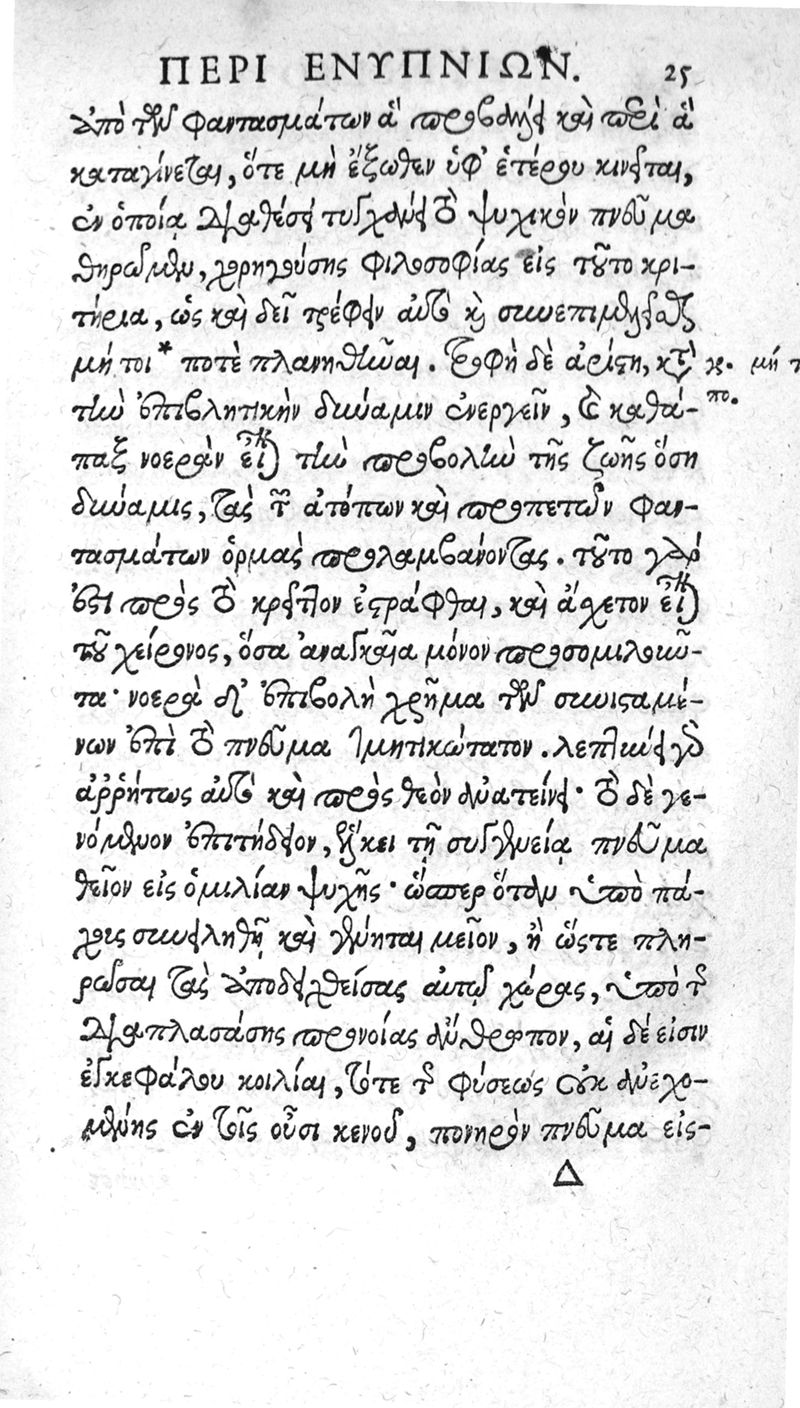 ΠΕΡΙ ΕΝΥΠΝΙΩΝ. 25
ἀπὸ τῶν φαντασμάτων ἃ προβάλλει καὶ περὶ ἃ
καταγίνεται, ὅτε μὴ ἔξωθεν ὑφ' ἑτέρου κινεῖται,
ἐν ὁποίᾳ διαθέσει τυγχάνει τὸ ψυχικὸν πνεῦμα
θηρῶμεν, χορηγούσης φιλοσοφίας εἰς τοῦτο κρι-
τήρια, ὡς καὶ δεῖ τρέφειν αὐτὸ κὶ συνεπιμελεῖσθαι
μή τοι* ποτὲ πλανηθῆναι. Τροφὴ δὲ ἀρίστη, κατὰ κ. μή τ
τὴν ἐπιβλητικὴν δύναμιν ἐνεργεῖν, καὶ καθά- πο.
παξ νοερὰν εἶναι τὴν προβολὴν τῆς ζωῆς ὅση
δύναμις, τὰς τῶν ἀτόπων καὶ προπετῶν φαν-
τασμάτων ὁρμὰς προλαμβάνοντας. τοῦτο γάρ
ἐστι πρὸς τὸ κρεῖττον ἐστράφθαι, καὶ ἄσχετον εἶναι
τοῦ χείρονος, ὅσα ἀναγκαῖα μόνον προσομιλοῦν-
τα· νοερὰ δ' ἐπιβολὴ χρῆμα τῶν συνισταμέ-
νων ἐπὶ τὸ πνεῦμα τμητικώτατον. λεπτύνει γὸ
ἀῤῥήτως αὐτὸ καὶ πρὸς θεὸν ἀνατείνει· τὸ δὲ γε-
νόμενον ἐπιτήδειον, ἕλκει τῇ συγγενείᾳ πνεῦμα
θεῖον εἰς ὁμιλίαν ψυχῆς· ὥσπερ ὅταν ὑπὸ πά-
χους συνειληθῇ καὶ γένηται μεῖον, ἢ ὥστε πλη-
ρῶσαι τὰς ἀποδειχθείσας αὐτῷ χώρας, ὑπὸ τῆς
διαπλασάσης προνοίας ἄνθρωπον, αἱ δέ εἰσιν
ἐγκεφάλου κοιλίαι, τότε τῆς φύσεως οὐκ ἀνεχο-
μένης ἐν τοῖς οὖσι κενοῦ, πονηρὸν πνεῦμα εἰς-
Δ